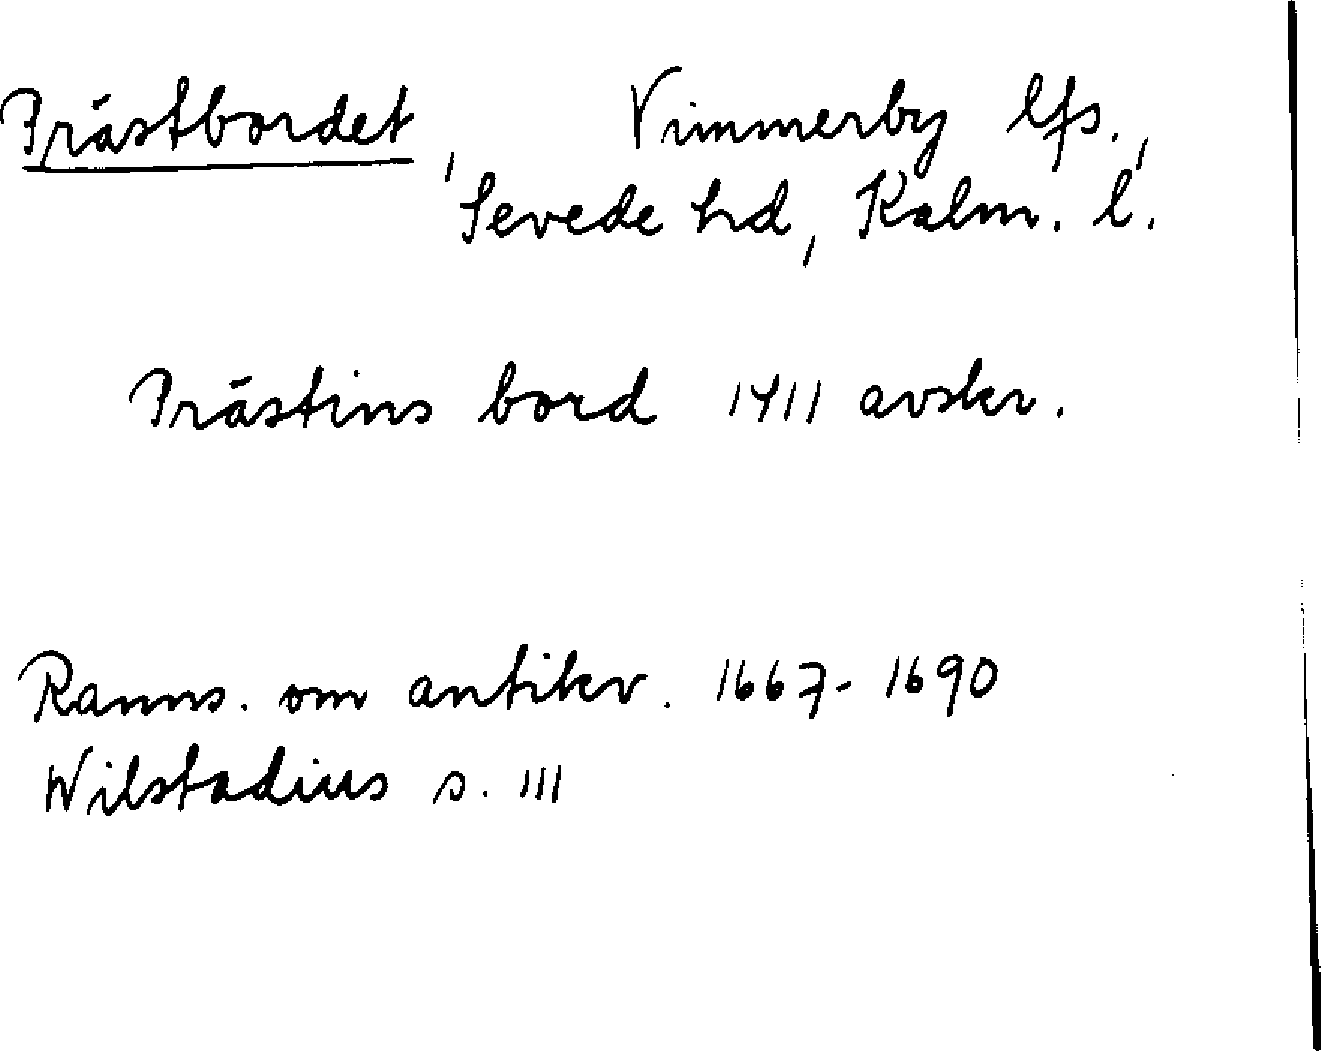 Prästbordet, Vimmerby lfs.,
Sevede hd, Kalm. l.
Prästins bord 1411 avskr.
Ranns. om antikv. 1667-1690
Wilstadius s. 111